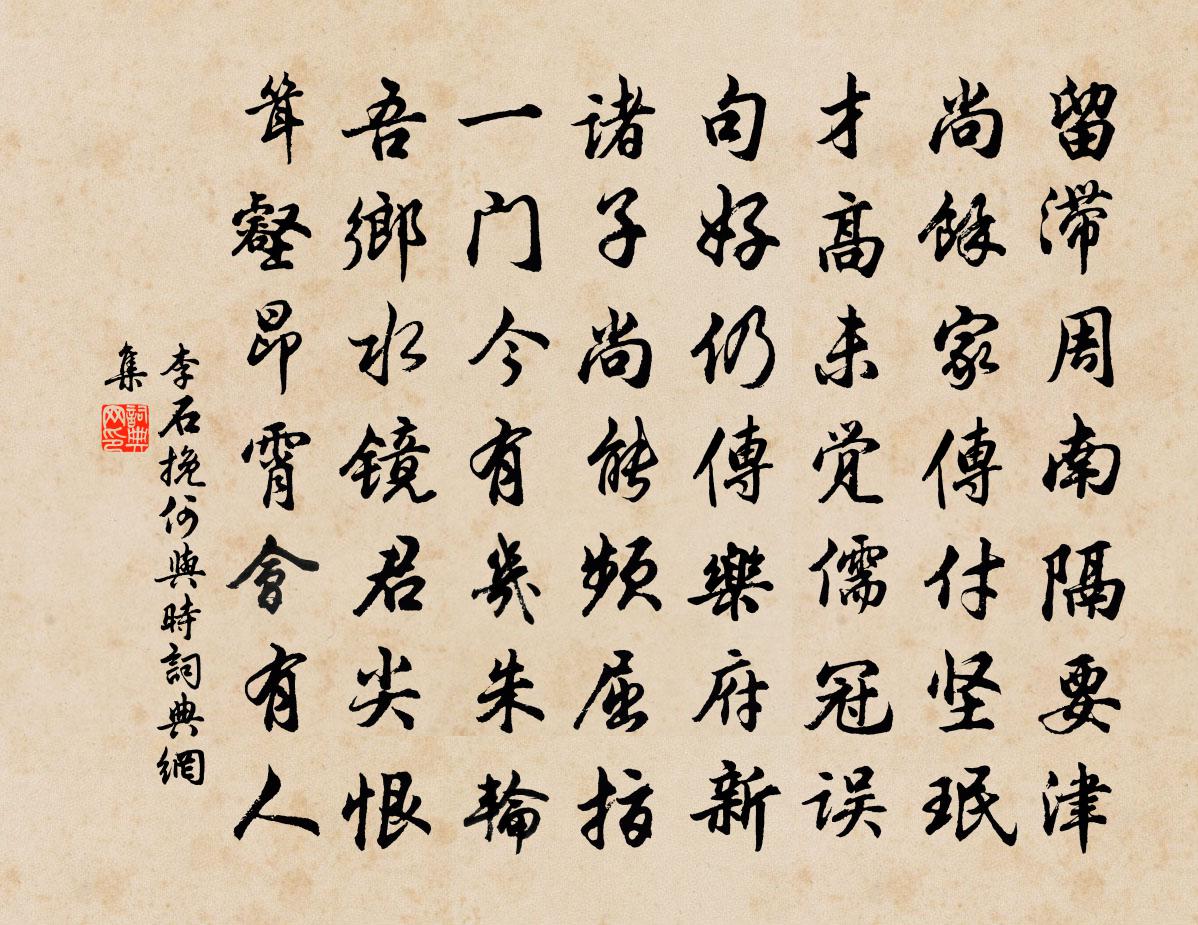 留滞周南隔要津
尚餘家傳付坚珉
才高未觉儒冠误
句好仍傳樂府新
诸子尚能频屈指
一门今有幾朱輪
吾鄉水镜君尖恨
耸壑昂霄會有人
李石挽何與時詞典網
集
詞典
网印